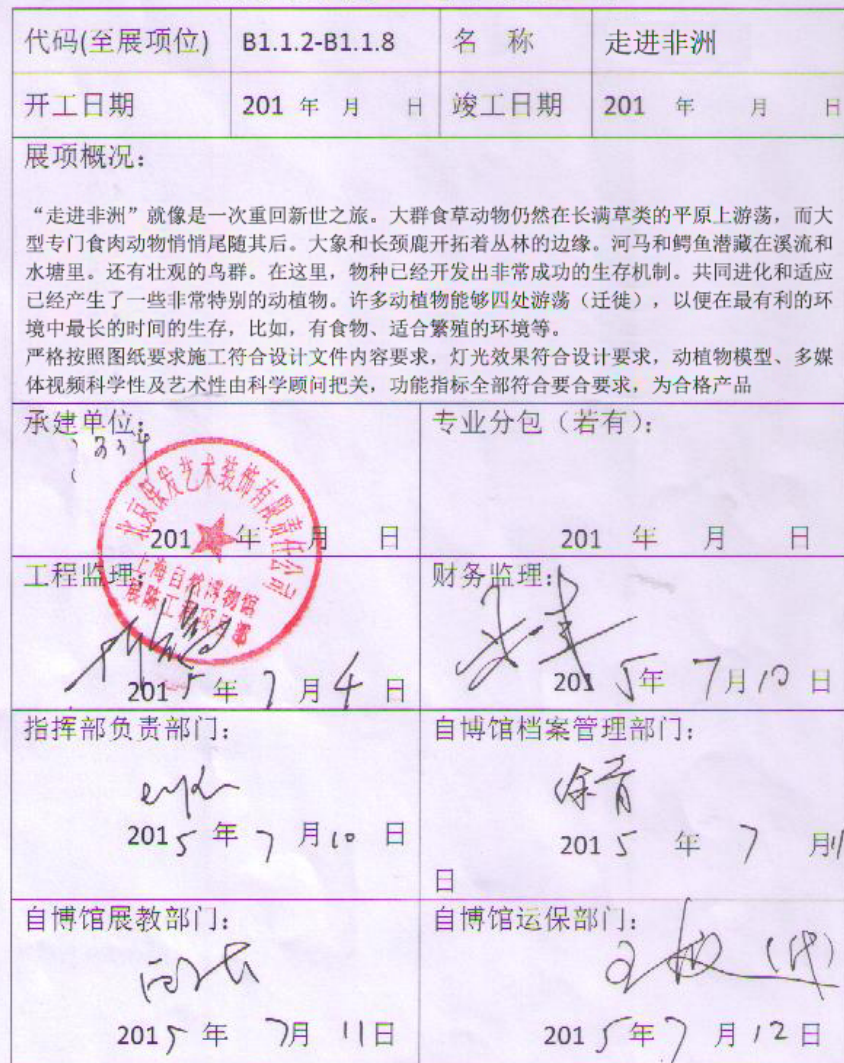 代码(至展项位) B1.1.2-B1.1.8 名 称 走进非洲
开工日期 201 年 月 日 竣工日期 201 年 月 日
展项概况：
“走进非洲”就像是一次重回新世之旅。大群食草动物仍然在长满草类的平原上游荡，而大
型专门食肉动物悄悄尾随其后。大象和长颈鹿开拓着丛林的边缘。河马和鳄鱼潜藏在溪流和
水塘里。还有壮观的鸟群。在这里，物种已经开发出非常成功的生存机制。共同进化和适应
已经产生了一些非常特别的动植物。许多动植物能够四处游荡（迁徙），以便在最有利的环
境中最长的时间的生存，比如，有食物、适合繁殖的环境等。
严格按照图纸要求施工符合设计文件内容要求，灯光效果符合设计要求，动植物模型、多媒
体视频科学性及艺术性由科学顾问把关，功能指标全部符合要合要求，为合格产品
承建单位： 专业分包（若有）：
北京保发艺术装饰有限责任公司
上海自然博物馆
展陈工程
201 年 月 日 201 年 月 日
工程监理： 财务监理：
2015年7月4日 2015年7月10日
指挥部负责部门： 自博馆档案管理部门：
徐青
2015年7月10日 2015 年 7 月11
日
自博馆展教部门： 自博馆运保部门：
(代)
2015年7月11日 2015年7月12日